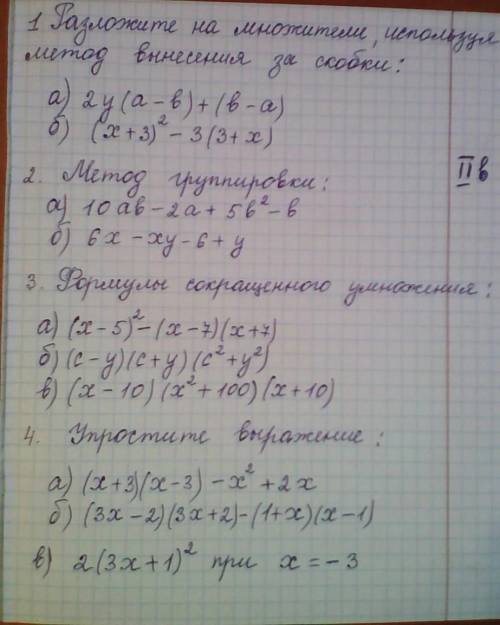 1 Разложите на множители, используя
метод вынесения за скобки:
а) 2y(a-b)+(b-a)
б) (x+3)²-3(3+x)
IIв
2. Метод группировки:
а) 10ab-2a+5b²-b
б) 6x-xy-6+y
3. Формулы сокращенного умножения:
а) (x-5)²-(x-7)(x+7)
б) (c-y)(c+y)(c²+y²)
в) (x-10)(x²+100)(x+10)
4. Упростите выражение:
а) (x+3)(x-3)-x²+2x
б) (3x-2)(3x+2)-(1+x)(x-1)
в) 2(3x+1)² при x=-3